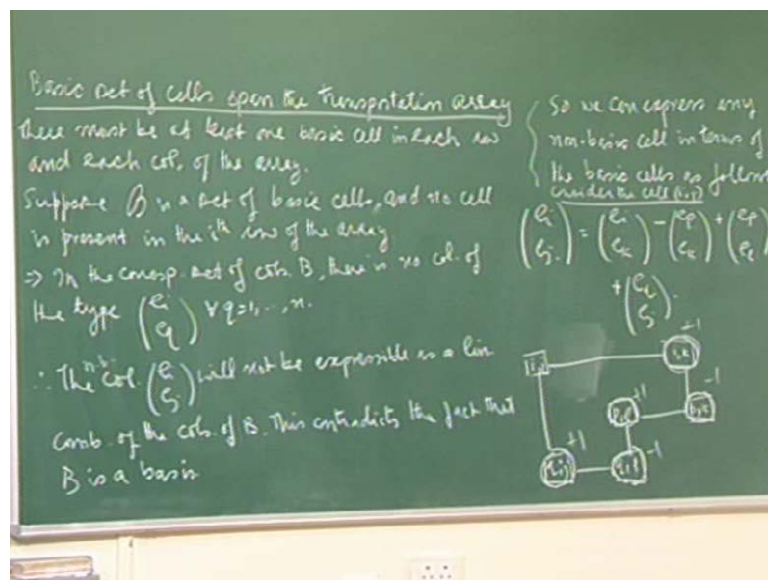 Basic set of cells span the transportation array
There must be at least one basic cell in each row
and each col. of the array.
Suppose B is a set of basic cells, and no cell
is present in the ith row of the array
⇒ In the corresp. set of cols. B, there is no col. of
the type (ei eq) ∀ q=1,..., n.
∴ The n.b. col. (ei ej) will not be expressible as a lin
comb. of the cols. of B. This contradicts the fact that
B is a basis
So we can express any
non-basic cell in terms of
the basic cells as follows
Consider the cell (i,j)
(ei ej) = (ei ek) - (ep ek) + (ep el)
+ (eq ej).
-1
i,j i,k
+1 -1
p,l p,k
+1 -1
q,j q,l